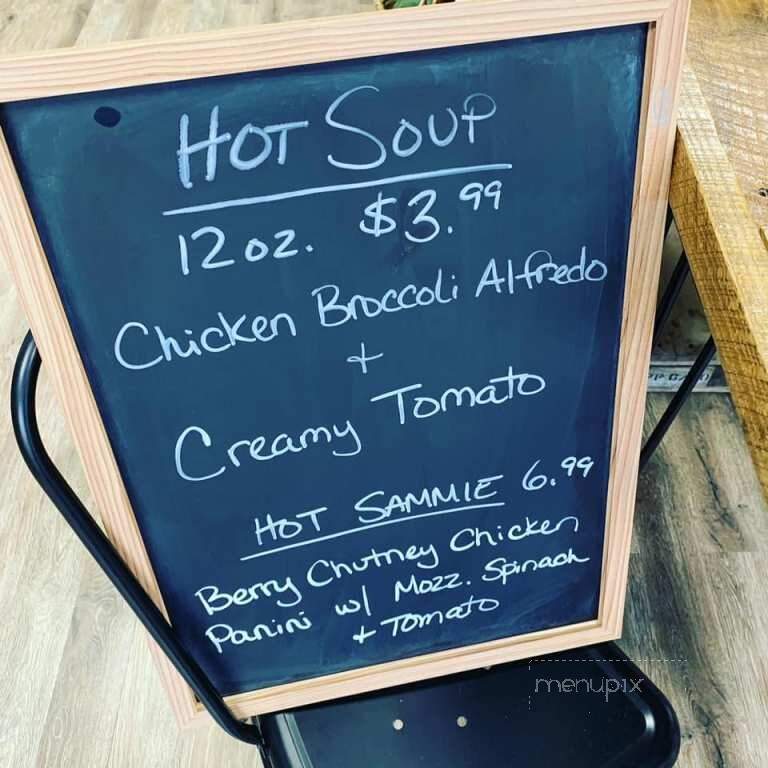 HOT SOUP
12 oz. $3.99
Chicken Broccoli Alfredo
+
Creamy Tomato
HOT SAMMIE 6.99
Berry Chutney Chicken
Panini w/ Mozz. Spinach
+ Tomato
menupix